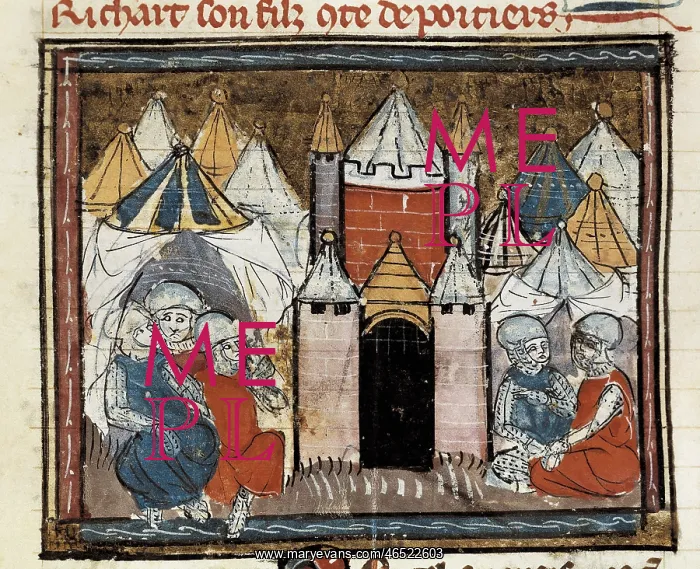 Richart son filz cte de poitiers.
ME
PL
ME
PL
www.maryevans.com/46522603